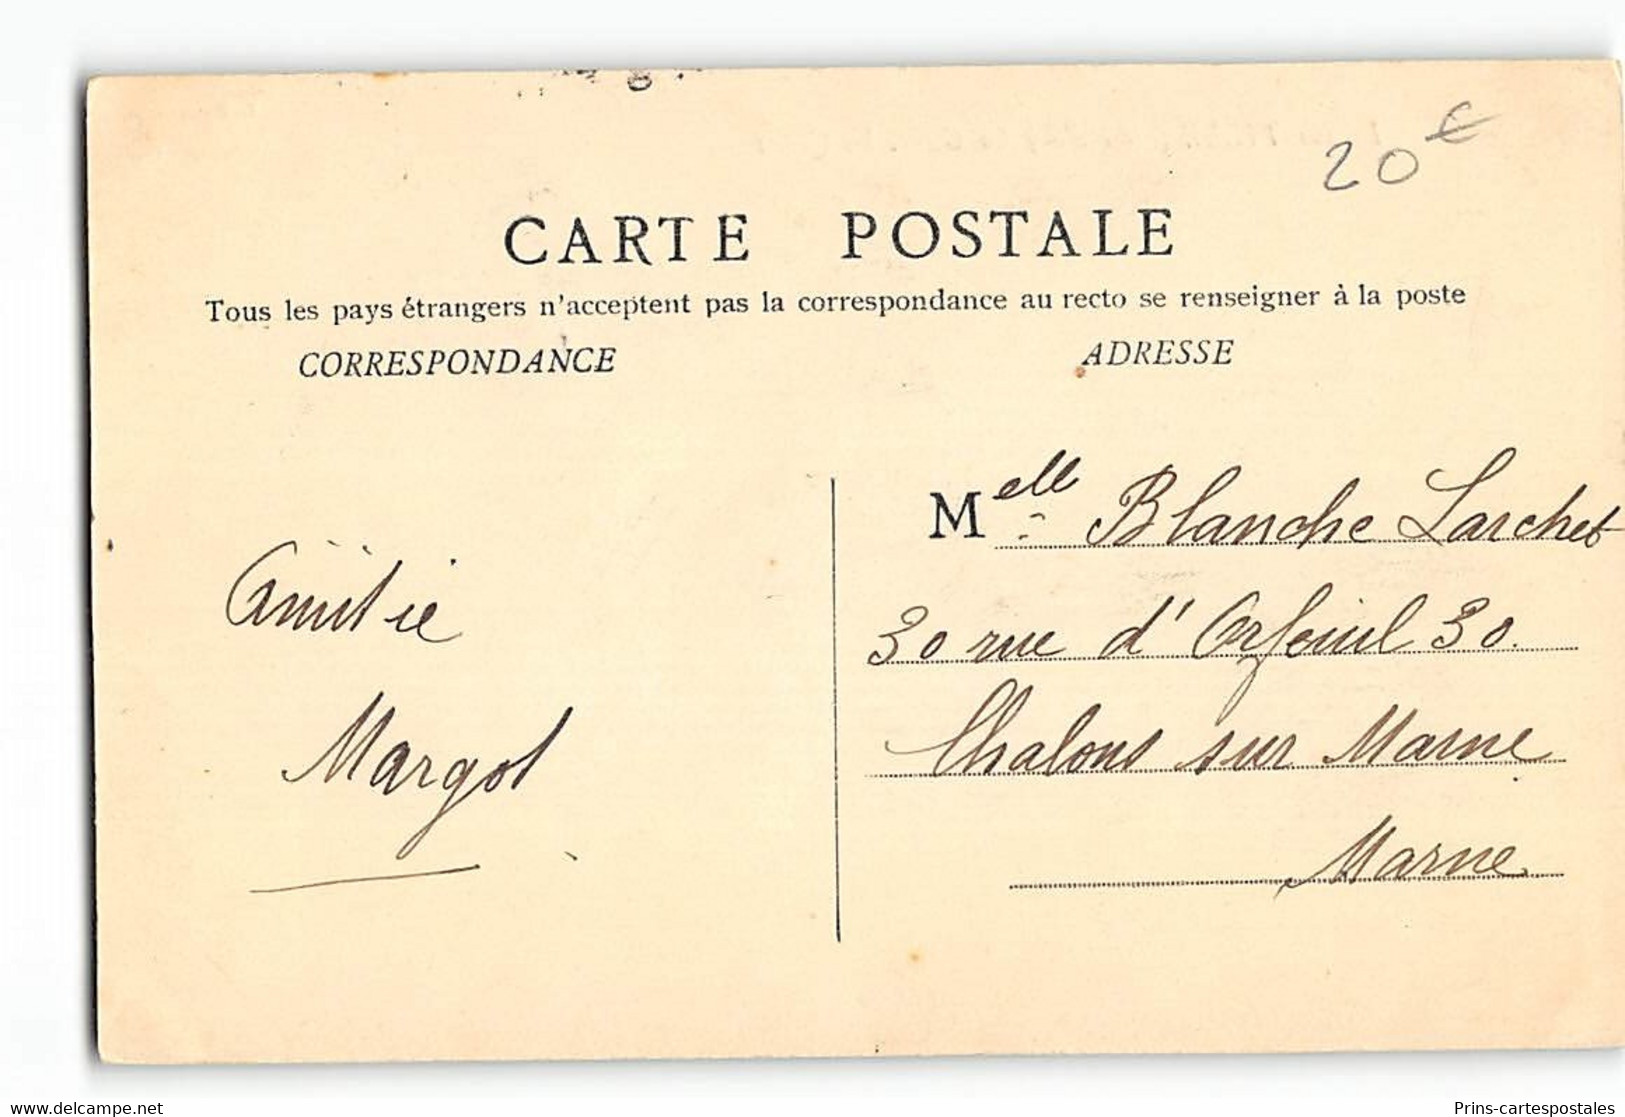 20 €
CARTE POSTALE
Tous les pays étrangers n'acceptent pas la correspondance au recto se renseigner à la poste
CORRESPONDANCE
ADRESSE
Amitie
Margot
Melle Blanche Larchet
30 rue d'Orfeuil 30.
Chalons sur Marne
Marne
www.delcampe.net
Prins-cartespostales